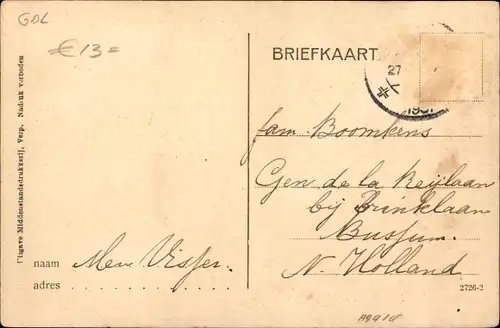 GDL
€ 13=
BRIEFKAART
27
1931
fam. Boomkens
Gen de la Reijlaan
bij Brinklaan
Bussum.
N. Holland
Uitgave Middenstandsdrukkerij, Verp. Nadruk verboden
naam Mev Visser.
adres
2726-2